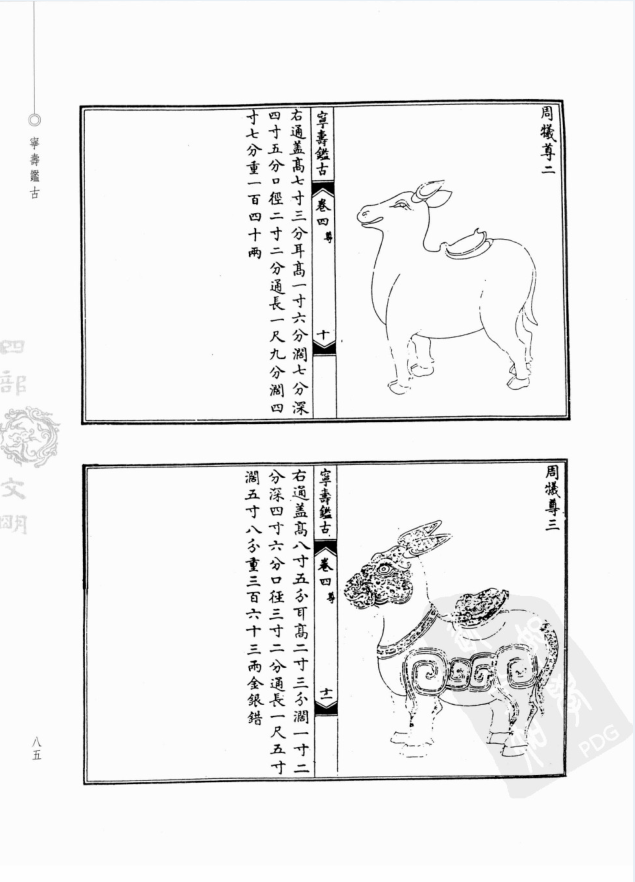 周犧尊二
寧壽鑑古
卷四 尊
十
右通蓋高七寸三分耳高一寸六分濶七分深
四寸五分口徑二寸二分通長一尺九分濶四
寸七分重一百四十兩
周犧尊三
寧壽鑑古
卷四 尊
十一
右通蓋高八寸五分耳高二寸三分濶一寸二
分深四寸六分口徑三寸二分通長一尺五寸
濶五寸八分重三百六十三兩金銀錯
寧壽鑑古
四部文明
八五
PDG